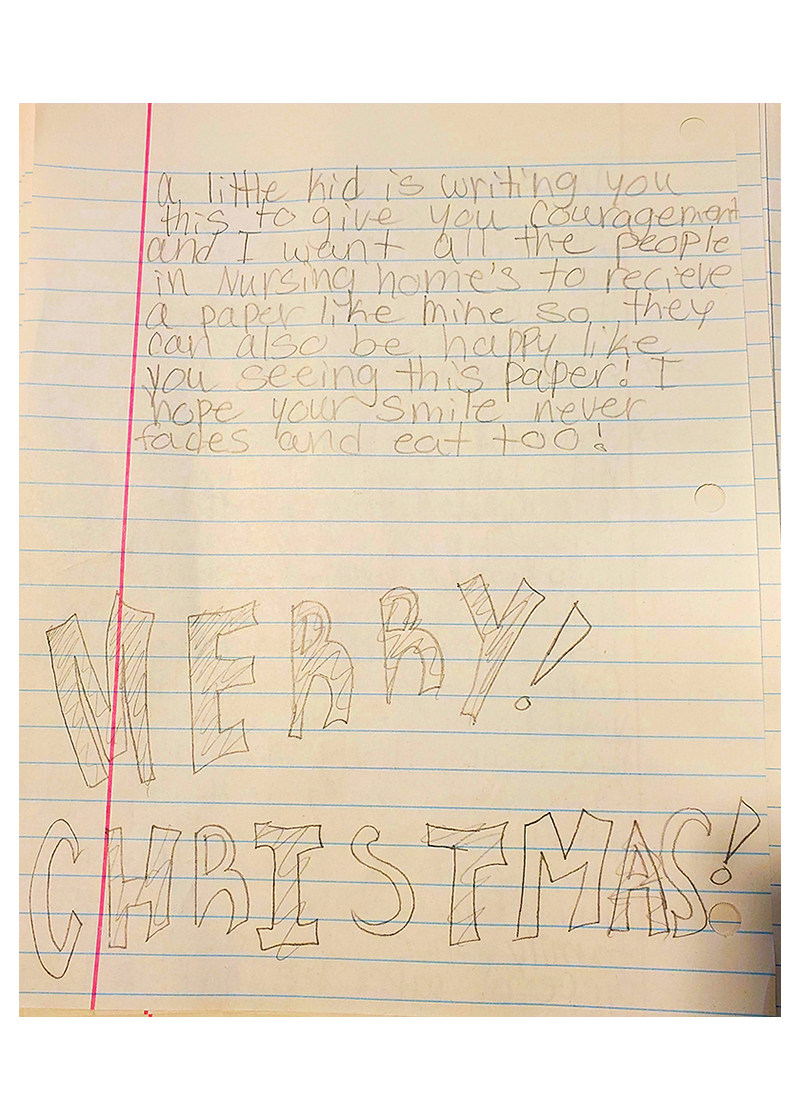 a little kid is writing you
this to give you couragement
and I want all the people
in Nursing home's to recieve
a paper like mine so they
can also be happy like
you seeing this paper! I
hope your smile never
fades and eat too!
MERRY!
CHRISTMAS!